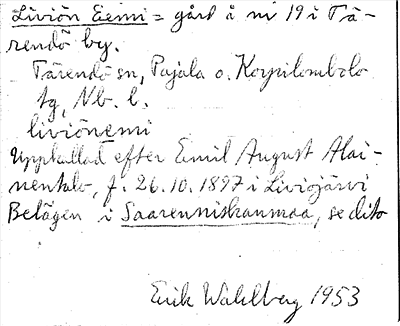 Liviön Eemi = gård å nr 19 i Tä-
rendö by.
Tärendö sn, Pajala o. Korpilombolo
tg, Nb. l.
liviönemi
Uppkallad efter Emil August Alai-
nentalo, f. 26.10.1897 i Liviöjärvi
Belägen i Saarenniskanmaa, se dito
Erik Wahlberg 1953